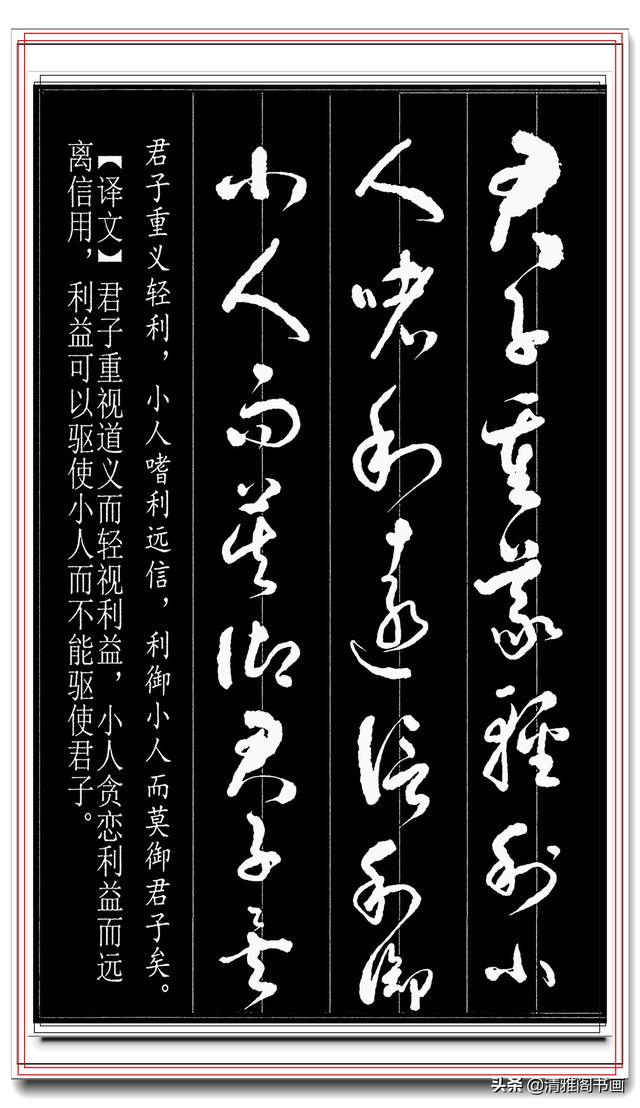 君子重義輕利小
人嗜利遠信利御
小人而莫御君子矣
君子重义轻利，小人嗜利远信，利御小人而莫御君子矣。
【译文】君子重视道义而轻视利益，小人贪恋利益而远
离信用，利益可以驱使小人而不能驱使君子。
头条 @清雅阁书画